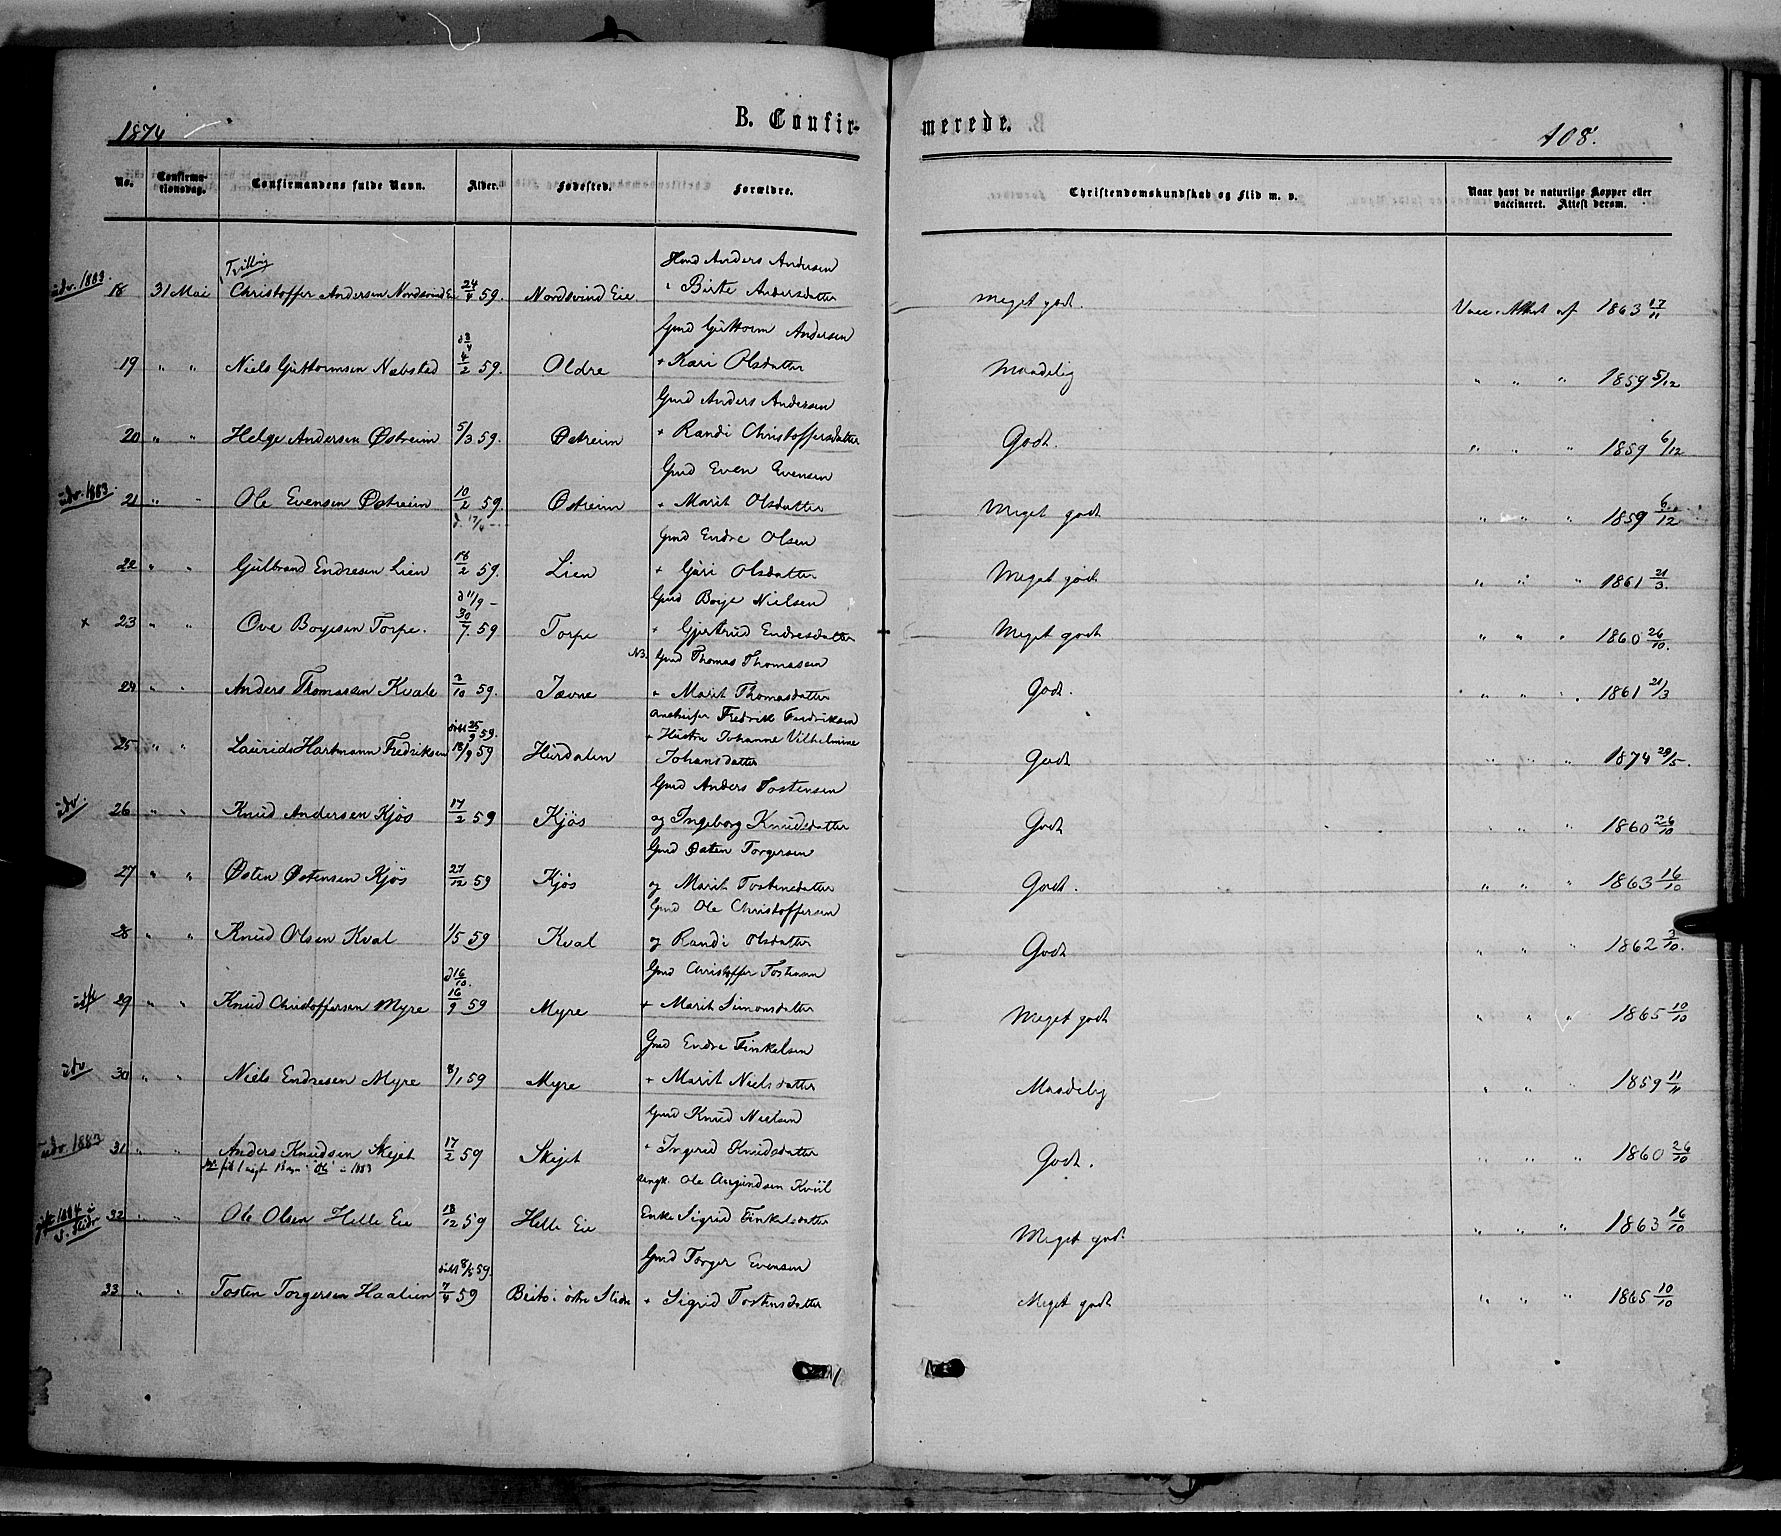 1874
B. Confirmerede.
108.
No. Confirmationsdag. Confirmandens fulde Navn. Alder. Fødested. Forældre. Christendomskundskab og Flid m. v. Naar havt de naturlige Kopper eller vaccineret. Attest derom.
Tvilling Anders Andersen
udv. 1883. 18 31 Mai Christoffer Andersen Nordsvind Eie 24/4 59. Nordsvind Eie Birte Andersdatter Meget godt. Vacc. Attest af 1863 17/11
Gmd Guttorm Andersen
19 " " Niels Guttormsen Næbstad 4/2 59. Oldre + Kari Olsdatter Maadelig " " " 1859 5/12
Gmd Anders Andersen
20 " " Helge Andersen Østreim 5/3 59. Østreim + Randi Christoffersdatter Godt. " " " 1859 6/12
Gmd Even Evensen
udv. 1883 21 " " Ole Evensen Østreim 10/2 59. Østreim + Marit Olsdatter Meget godt " " " 1859 6/12
Gmd Endre Olsen
22 " " Gulbrand Endresen Lien 18/2 59. Lien + Guri Olsdatter Meget godt " " " 1861 21/3.
d 11/9 Gmd Boye Nielsen
x 23 " " Ove Boyesen Torpe. 30/7. 59 Torpe + Gjertrud Endresdatter Meget godt " " " 1860 26/10.
NB. Gmd Thomas Thomasen
24 " " Anders Thomassen Kvale 3/10 59. Jævne + Marit Thomasdatter Godt. " " " 1861 21/3
døbt 25/9 59. Fredrik Fredriksen
+ Hustru Johanne Vilhelmine
25 " " Laurids Hartmann Fredriksen 18/9 59 Hurdalen Johansdatter Godt " " " 1874 29/5.
Gmd Anders Tostensen
udv 26 " " Knud Andersen Kjøs 17/2 59 Kjøs og Ingeborg Knudsdatter Godt " " " 1860 26/10
Gmd Østen Torgersen
27 " " Østen Østensen Kjøs 27/12 59 Kjøs og Marit Tostensdatter Godt. " " " 1863 16/10
Gmd Ole Christoffersen
28 " " Knud Olsen Kval 1/5 59 Kval og Randi Olsdatter Godt " " " 1862 3/10.
d 16/10. Gmd Christoffer
29 " " Knud Christoffersen Myre 16/9 59 Myre + Marit Simonsdatter Meget godt " " " 1865 10/10
Gmd Endre Finkelsen
udv 30 " " Niels Endresen Myre 8/1 59 Myre + Marit Nielsdatter Maadelig " " " 1859 11/11
Gmd Knud Nielsen
udv 1883 31 " " Anders Knudsen Skejet 17/2 59 Skejet + Ingrid Knudsdatter Godt. " " " 1860 26/10
1883 Ole
32 " " Ole Olsen Helle Eie 18/12 59 Helle Eie Enke Sigrid Finkelsdatter Meget godt " " " 1863 16/10
døbt 8/5 59. Gmd Torger Evensen
33 " " Tosten Torgersen Haalien 7/4 59 Beito i østre Slidre + Sigrid Tostensdatter Meget godt " " " 1865 10/10